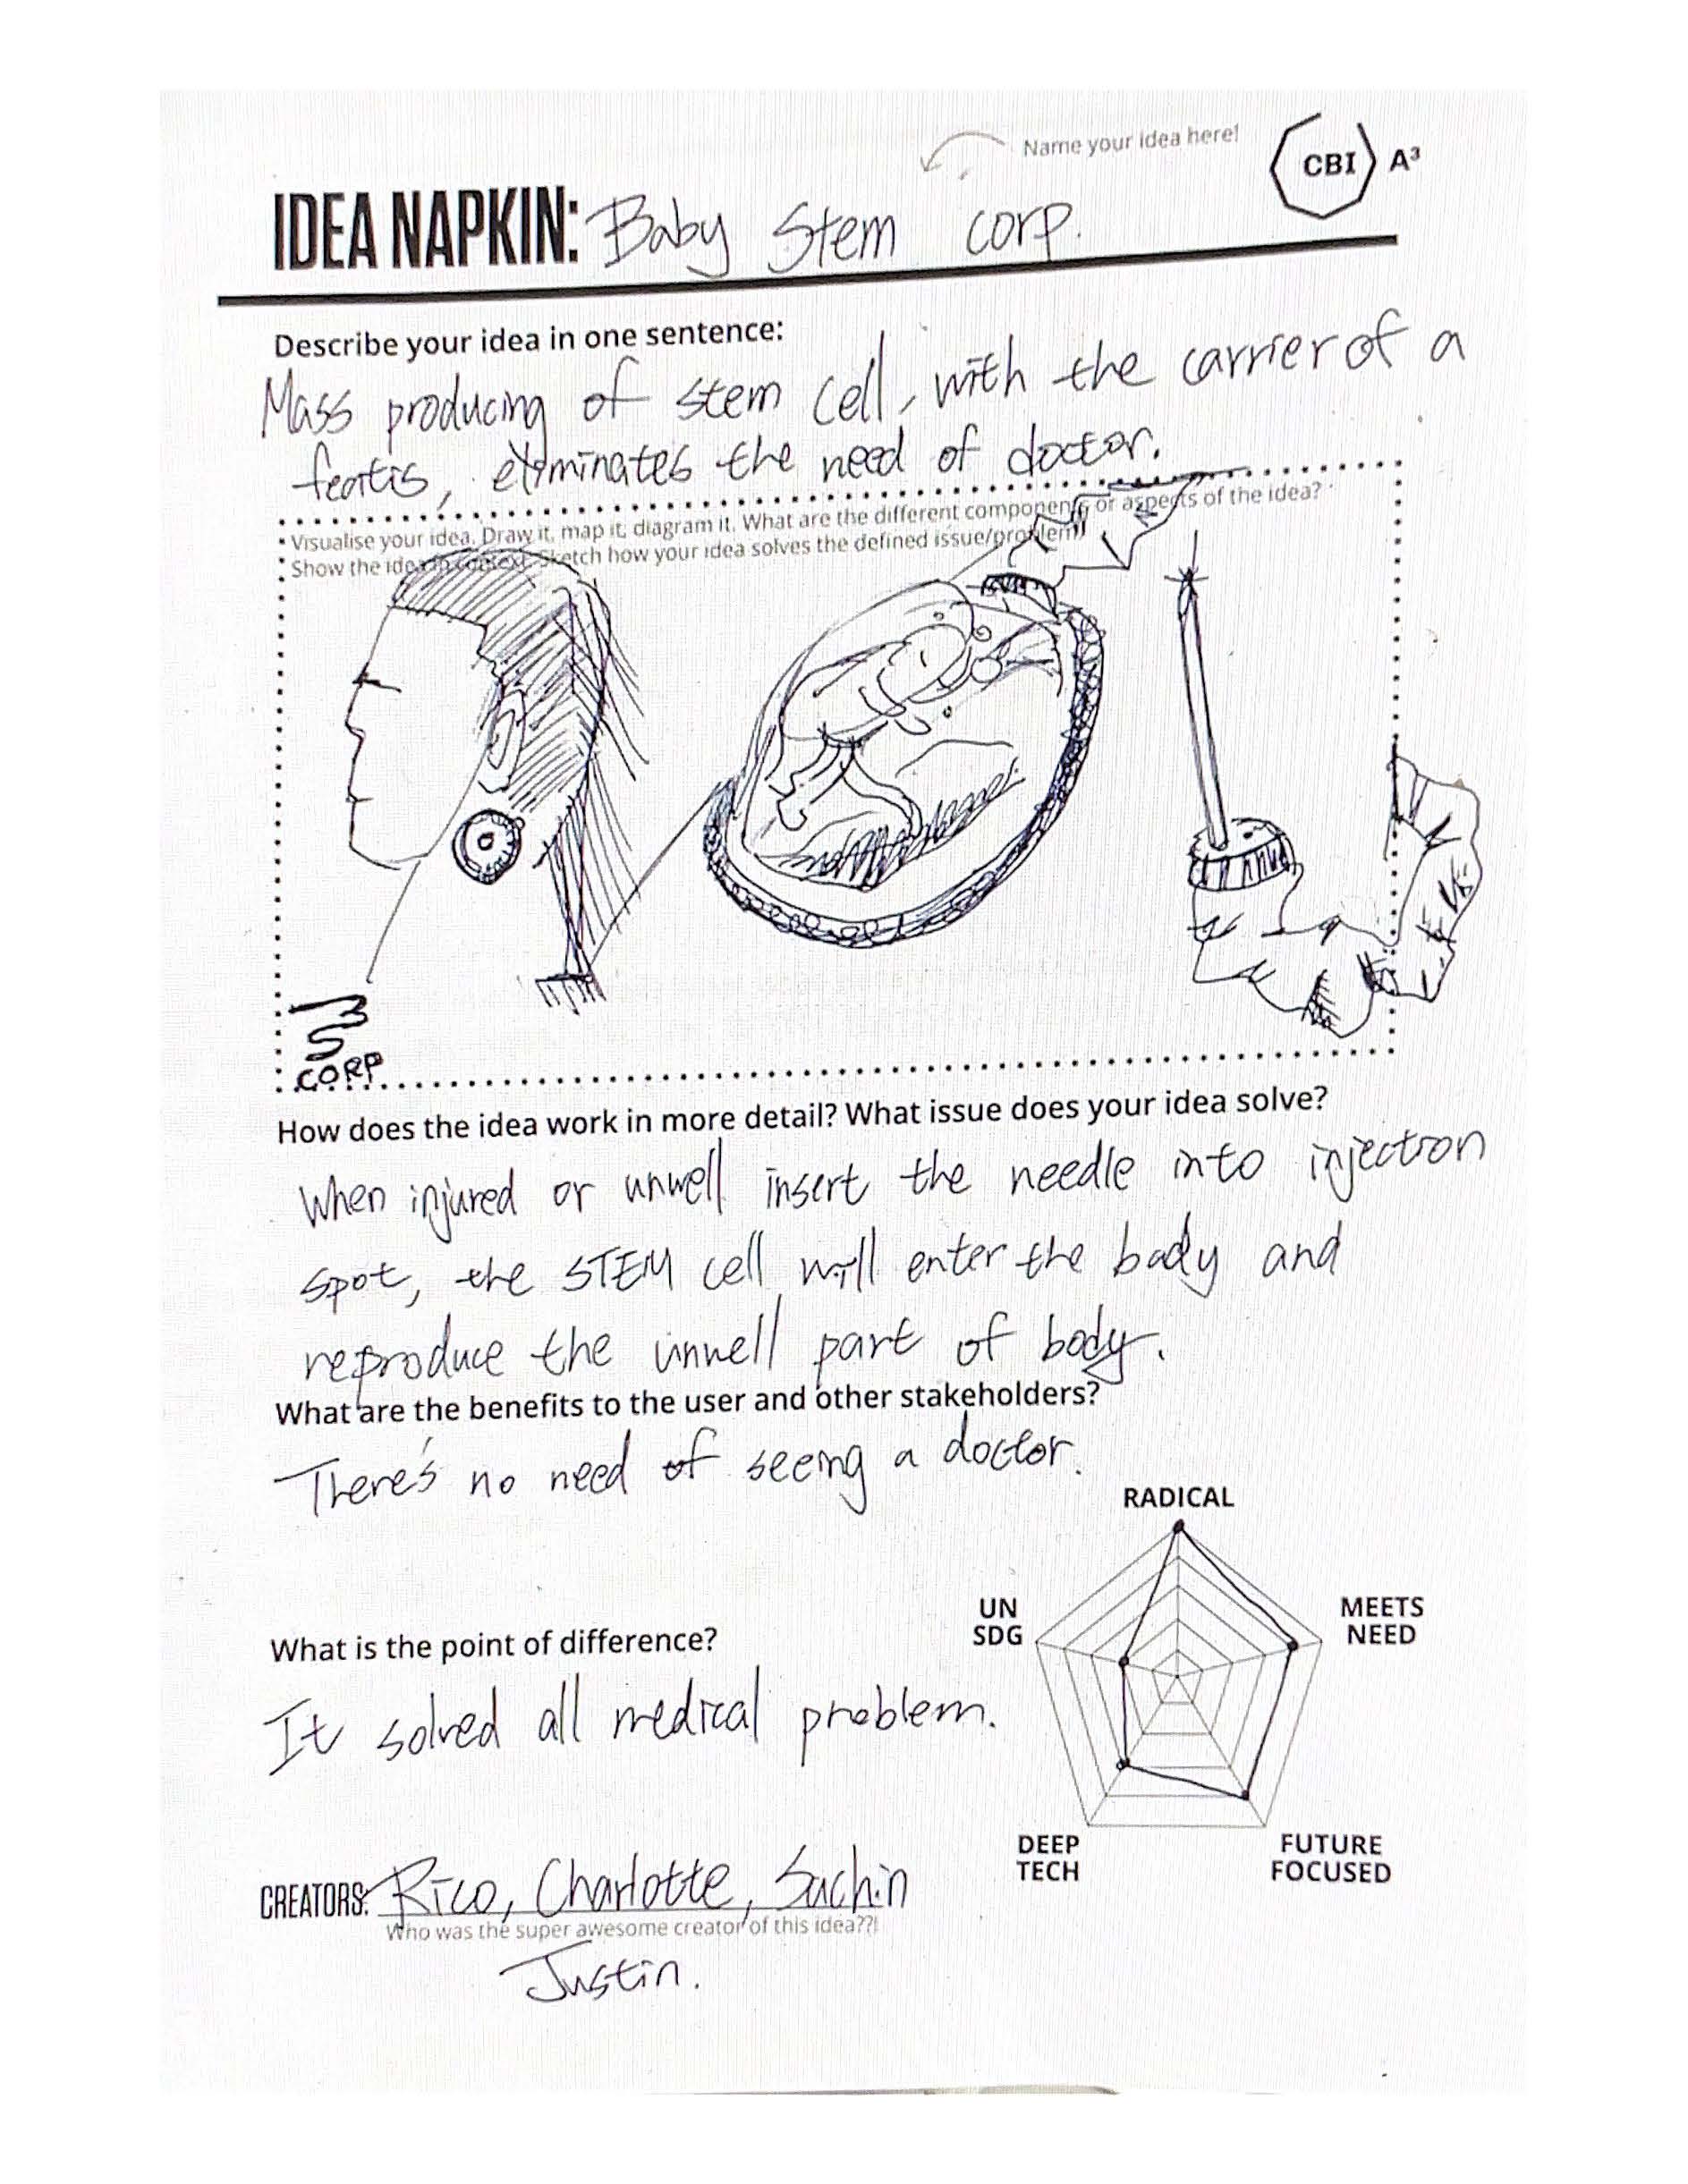 Name your idea here!
CBI A³
IDEA NAPKIN: Baby Stem corp.
Describe your idea in one sentence:
Mass producing of stem cell, with the carrier of a
feotis, eliminates the need of doctor.
Visualise your idea. Draw it, map it, diagram it. What are the different components or aspects of the idea?
Show the idea in context. Sketch how your idea solves the defined issue/problem!
CORP
How does the idea work in more detail? What issue does your idea solve?
When injured or unwell insert the needle into injection
spot, the STEM cell will enter the body and
reproduce the unwell part of body.
What are the benefits to the user and other stakeholders?
There's no need of seeing a doctor.
RADICAL
UN
SDG
MEETS
NEED
What is the point of difference?
It solved all medical problem.
DEEP
TECH
FUTURE
FOCUSED
CREATORS: Rico, Charlotte, Sachin
Who was the super awesome creator of this idea??!
Justin.